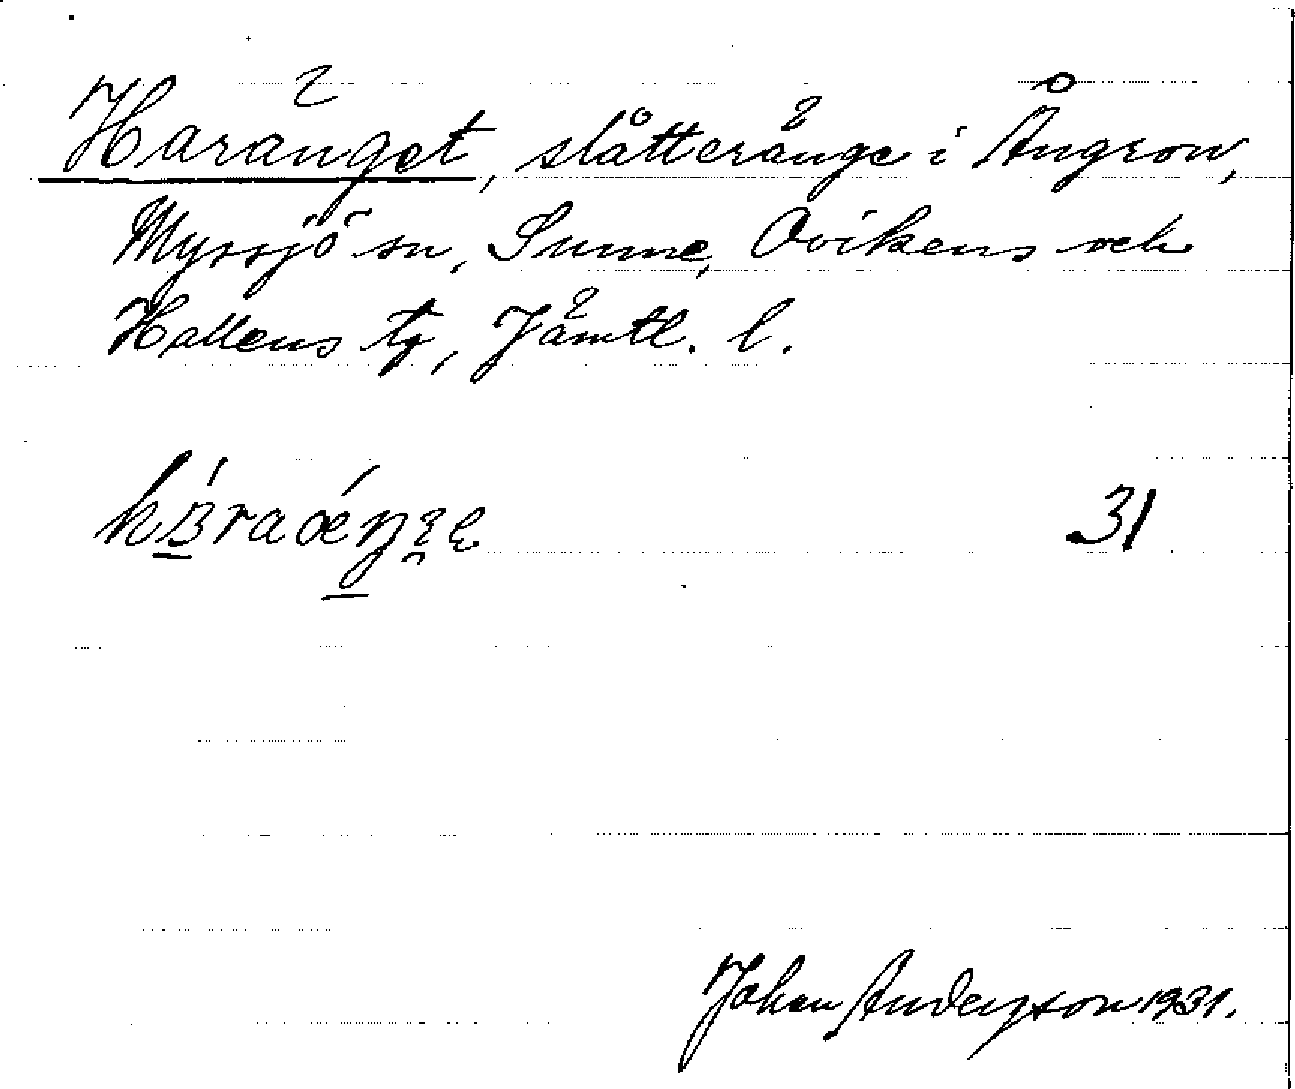 Haränget, slåtteränge i Ångron,
Myssjö sn, Sunne, Ovikens och
Hallens tg, Jämtl. l.
31
Johan Andersson 1931.